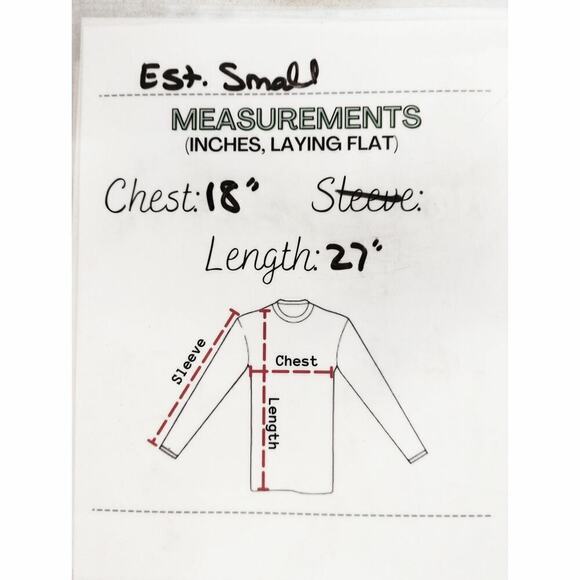 Est. Small
MEASUREMENTS
(INCHES, LAYING FLAT)
Chest: 18" Sleeve:
Length: 27"
Sleeve
Chest
Length